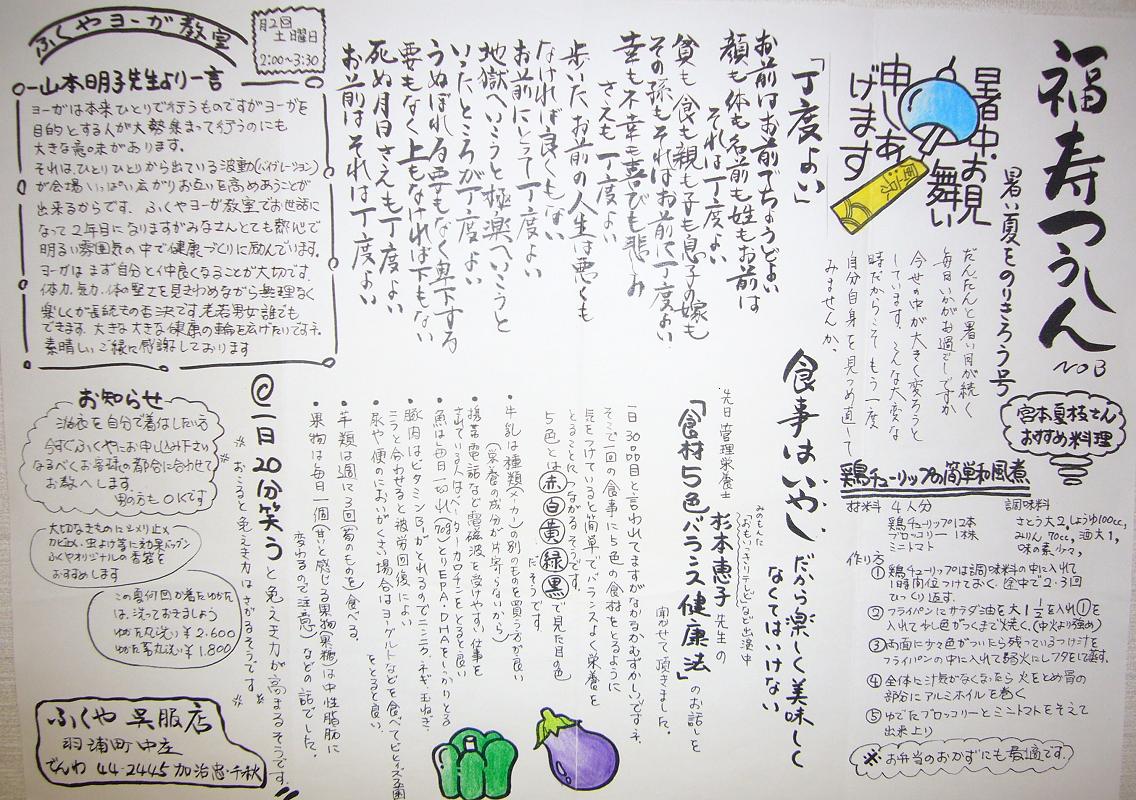 福寿つうしん
NO3
暑い夏をのりきろう号
暑中お見
舞い
申しあ
げます
だんだんと暑い日が続く
毎日いかがお過ごしですか
今世の中が大きく変ろうと
しています。こんな大変な
時だからこそもう一度
自分自身を見つめ直し
みませんか。
「丁度よい」
お前はお前でちょうどよい
顔も体も名前も姓もお前は
それは丁度よい
貧も食も親も子も息子の嫁も
その孫もそれはお前に丁度よい
幸も不幸も喜びも悲しみ
さえも丁度よい
歩いたお前の人生は悪くも
なければ良くもない
お前にとって丁度よい
地獄へいこうと極楽へいこうと
いったところが丁度よい
うぬぼれる要もなく卑下する
要もなく上もなければ下もない
死ぬ月日さえも丁度よい
お前はそれは丁度よい
ふくやヨーガ教室
月2回
土曜日
2:00〜3:30
山本明子先生より一言
ヨーガは本来ひとりで行うものですがヨーガを
目的とする人が大勢集まって行うのにも
大きな意味があります。
それは、ひとりひとりから出ている波動(バイブレーション)
が会場いっぱい広がりお互いを高めあうことが
出来るからです。ふくやヨーガ教室でお世話に
なって2年目になりますがみなさんとても熱心で
明るい雰囲気の中で健康づくりに励んでいます。
ヨーガはまず自分と仲良くなることが大切です。
体力、気力、体の堅さを見きわめながら無理なく
楽しくが長続きの否決です。老若男女誰でも
できます。大きな大きな健康の輪を広げたいですネ。
素晴しいご縁に感謝しております
宮本夏枝さん
おすすめ料理
鶏チューリップの簡単和風煮
材料 4人分
鶏チューリップ12本
ブロッコリー 1株
ミニトマト
調味料
さとう大2、しょうゆ100cc、
みりん70cc、酒大1、
味の素少々、
作り方
① 鶏チューリップは調味料の中に入れて
1時間位つけておく。途中で2・3回
ひっくり返す。
② フライパンにサラダ油を大1½を入れ①を
入れて少し色がつくまで焼く。(中火より強め)
③ 両面に少々色がついたら残っているつけ汁を
フライパンの中に入れて弱火にしフタをして蒸す。
④ 全体に汁気がなくなったら火をとめ骨の
部分にアルミホイルを巻く
⑤ ゆでたブロッコリーとミニトマトをそえて
出来上り
※お弁当のおかずにも最適です。
食事はいやし
だから楽しく美味しく
なくてはいけない
先日管理栄養士
杉本恵子先生の
みのもんた
「おもいッきりテレビ」など出演中
「食材5色バランス健康法」のお話しを
聞かせて頂きました。
一日30品目と言われてますがなかなかむずかしいですネ、
そこで一回の食事に5色の食材をとるように
気をつけていると簡単でバランスよく栄養を
とることにつながるそうです。
5色とは赤白黄緑黒で見た目の色
だそうです。
●牛乳は種類(メーカー)の別のものを買う方が良い
(栄養の成分が片寄らないから)
●携帯電話など電磁波を受けやすい仕事を
されている人はベーターカロチンをとると良い
●魚は毎日一切れ(70g)とりEPA・DHAをしっかりとる
●豚肉はビタミンBがとれるのでニンニク、ネギ、玉ねぎ、
ニラと合わせると疲労回復によい
●尿や便のにおいがくさい場合はヨーグルトなどを食べてビヒィズス菌
をとると良い。
●芋類は週に3回(旬のものを)食べる。
●果物は毎日一個(甘いと感じる果物(果糖)は中性脂肪に
変わるので注意)などの話でした。
@一日20分笑うと免え力が高まるそうです。
※おこると免え力はさがるそうです※
お知らせ
浴衣を自分で着付したい方
今すぐふくやにお申し込み下さい
なるべくお客様の都合に合わせて
お教へします。
男の方もOKです
大切なきものにシメリ止メ
カビ止め、虫よけ等に効果バツグン
ふくやオリジナルの香袋を
おすすめします
この夏何回か着たゆかた
は、洗っておきましょう
ゆかた丸洗い ¥2,600
ゆかた系丸洗い ¥1,800
ふくや呉服店
羽浦町中庄
でんわ 44-2445 加治忠・千秋